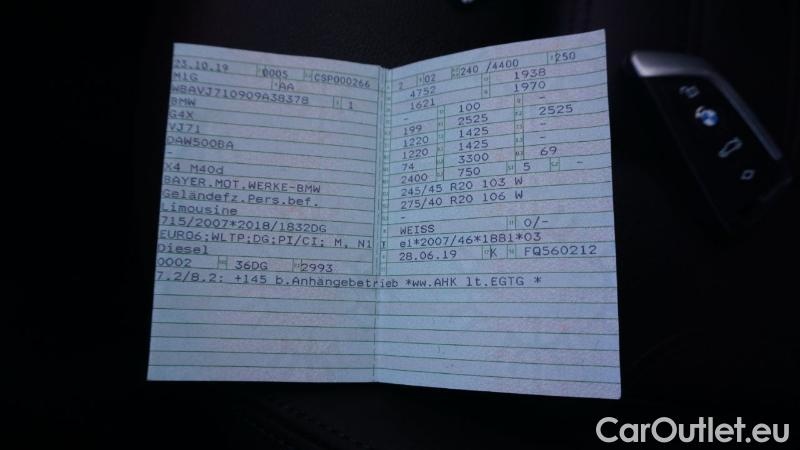 23.10.19 0005 CSP000266
M1G AA
WBAVJ710909A38378 1
BMW
G4X
VJ71
DAW500BA
-
X4 M40d
BAYER.MOT.WERKE-BMW
Geländefz.Pers.bef.
Limousine
715/2007*2018/1832DG
EURO6;WLTP;DG;PI/CI; M, N1
Diesel
0002 36DG 2993
7.2/8.2: +145 b.Anhängebetrieb *ww.AHK lt.EGTG *
2 02 240 /4400 250
4752 1938
1621 1970
- 100 -
199 2525 2525
1220 1425 -
1220 1425 -
74 3300 69
2400 750 5 -
245/45 R20 103 W
275/40 R20 106 W
-
WEISS 0/-
e1*2007/46*1881*03
28.06.19 K FQ560212
CarOutlet.eu